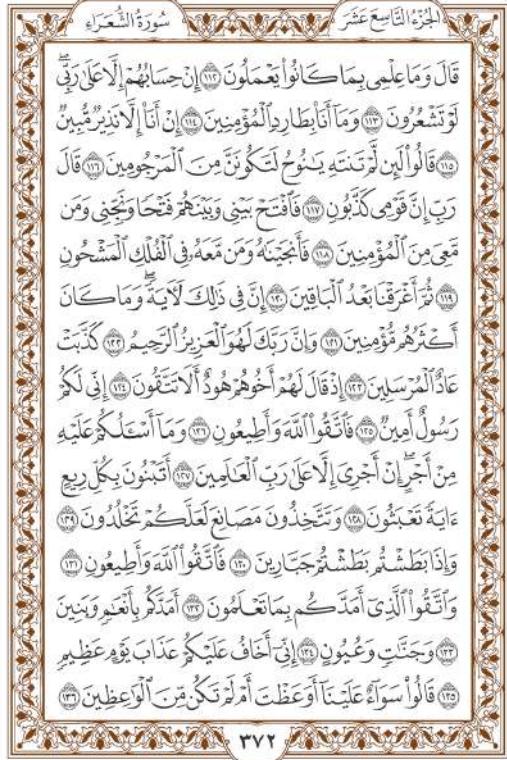 الجُزْءُ التَّاسِعَ عَشَرَ سُورَةُ الشُّعَرَاءِ
قَالَ وَمَا عِلْمِي بِمَا كَانُوا۟ يَعْمَلُونَ ١١٢ إِنْ حِسَابُهُمْ إِلَّا عَلَىٰ رَبِّي ۖ
لَوْ تَشْعُرُونَ ١١٣ وَمَآ أَنَا۠ بِطَارِدِ ٱلْمُؤْمِنِينَ ١١٤ إِنْ أَنَا۠ إِلَّا نَذِيرٌ مُّبِينٌ
١١٥ قَالُوا۟ لَئِن لَّمْ تَنتَهِ يَٰنُوحُ لَتَكُونَنَّ مِنَ ٱلْمَرْجُومِينَ ١١٦ قَالَ
رَبِّ إِنَّ قَوْمِي كَذَّبُونِ ١١٧ فَٱفْتَحْ بَيْنِي وَبَيْنَهُمْ فَتْحًا وَنَجِّنِي وَمَن
مَّعِيَ مِنَ ٱلْمُؤْمِنِينَ ١١٨ فَأَنجَيْنَٰهُ وَمَن مَّعَهُۥ فِي ٱلْفُلْكِ ٱلْمَشْحُونِ
١١٩ ثُمَّ أَغْرَقْنَا بَعْدُ ٱلْبَاقِينَ ١٢٠ إِنَّ فِي ذَٰلِكَ لَءَايَةً ۖ وَمَا كَانَ
أَكْثَرُهُم مُّؤْمِنِينَ ١٢١ وَإِنَّ رَبَّكَ لَهُوَ ٱلْعَزِيزُ ٱلرَّحِيمُ ١٢٢ كَذَّبَتْ
عَادٌ ٱلْمُرْسَلِينَ ١٢٣ إِذْ قَالَ لَهُمْ أَخُوهُمْ هُودٌ أَلَا تَتَّقُونَ ١٢٤ إِنِّي لَكُمْ
رَسُولٌ أَمِينٌ ١٢٥ فَٱتَّقُوا۟ ٱللَّهَ وَأَطِيعُونِ ١٢٦ وَمَآ أَسْـَٔلُكُمْ عَلَيْهِ
مِنْ أَجْرٍ ۖ إِنْ أَجْرِيَ إِلَّا عَلَىٰ رَبِّ ٱلْعَٰلَمِينَ ١٢٧ أَتَبْنُونَ بِكُلِّ رِيعٍ
ءَايَةً تَعْبَثُونَ ١٢٨ وَتَتَّخِذُونَ مَصَانِعَ لَعَلَّكُمْ تَخْلُدُونَ ١٢٩
وَإِذَا بَطَشْتُم بَطَشْتُمْ جَبَّارِينَ ١٣٠ فَٱتَّقُوا۟ ٱللَّهَ وَأَطِيعُونِ ١٣١
وَٱتَّقُوا۟ ٱلَّذِيٓ أَمَدَّكُم بِمَا تَعْلَمُونَ ١٣٢ أَمَدَّكُم بِأَنْعَٰمٍ وَبَنِينَ
١٣٣ وَجَنَّٰتٍ وَعُيُونٍ ١٣٤ إِنِّيٓ أَخَافُ عَلَيْكُمْ عَذَابَ يَوْمٍ عَظِيمٍ
١٣٥ قَالُوا۟ سَوَآءٌ عَلَيْنَآ أَوَعَظْتَ أَمْ لَمْ تَكُن مِّنَ ٱلْوَٰعِظِينَ ١٣٦
٣٧٢